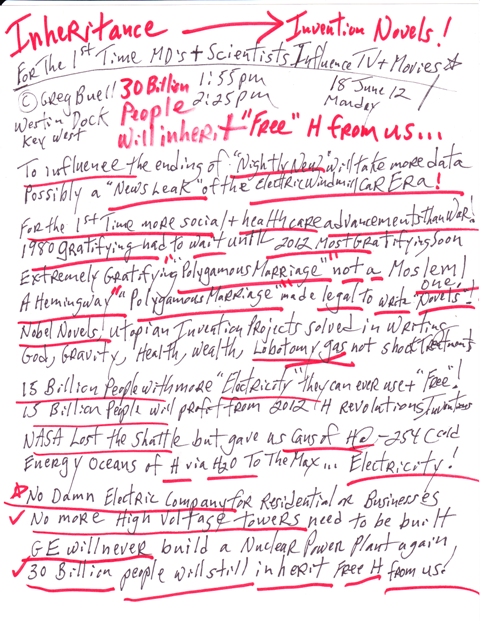 Inheritance → Invention Novels!
For The 1st Time MD's + Scientists Influence TV + Movies
© Greg Buell 30 Billion 1:55pm 18 June 12
Westin Dock People 2:25pm Monday
Key West will inherit "Free" H from us...
To influence the ending of "Nightly News" will take more data
Possibly a "News Leak" of the Electric Windmill Car Era!
For the 1st Time more social + health care advancements than War!
1980 gratifying had to wait until 2012 Most Gratifying soon
Extremely Gratifying "Polygamous Marriage" not a Moslem one.
A Hemingway "Polygamous Marriage" made legal to write Novels!
Nobel Novels, utopian Invention Projects solved in writing
God, Gravity, Health, Wealth, Lobotomy gas not shock treatments
15 Billion People with more "Electricity" they can ever use + "Free"!
15 Billion People will profit from 2012 H Revolutions Inventions
NASA Lost the Shuttle but gave us Cans of H @ -254 C cold
Energy Oceans of H via H2O To The Max... Electricity!
No Damn Electric Company for Residential or Businesses
✓ No more High Voltage Towers need to be built
GE will never build a Nuclear Power Plant again
✓ 30 Billion people will still inherit Free H from us!